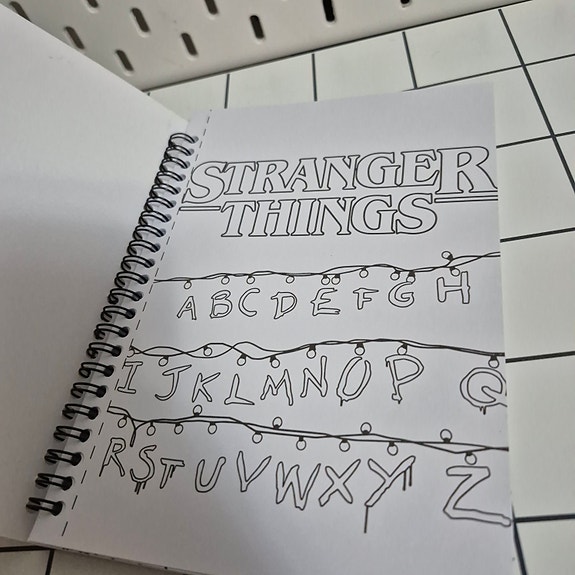 STRANGER
THINGS
A B C D E F G H
I J K L M N O P Q
R S T U V W X Y Z